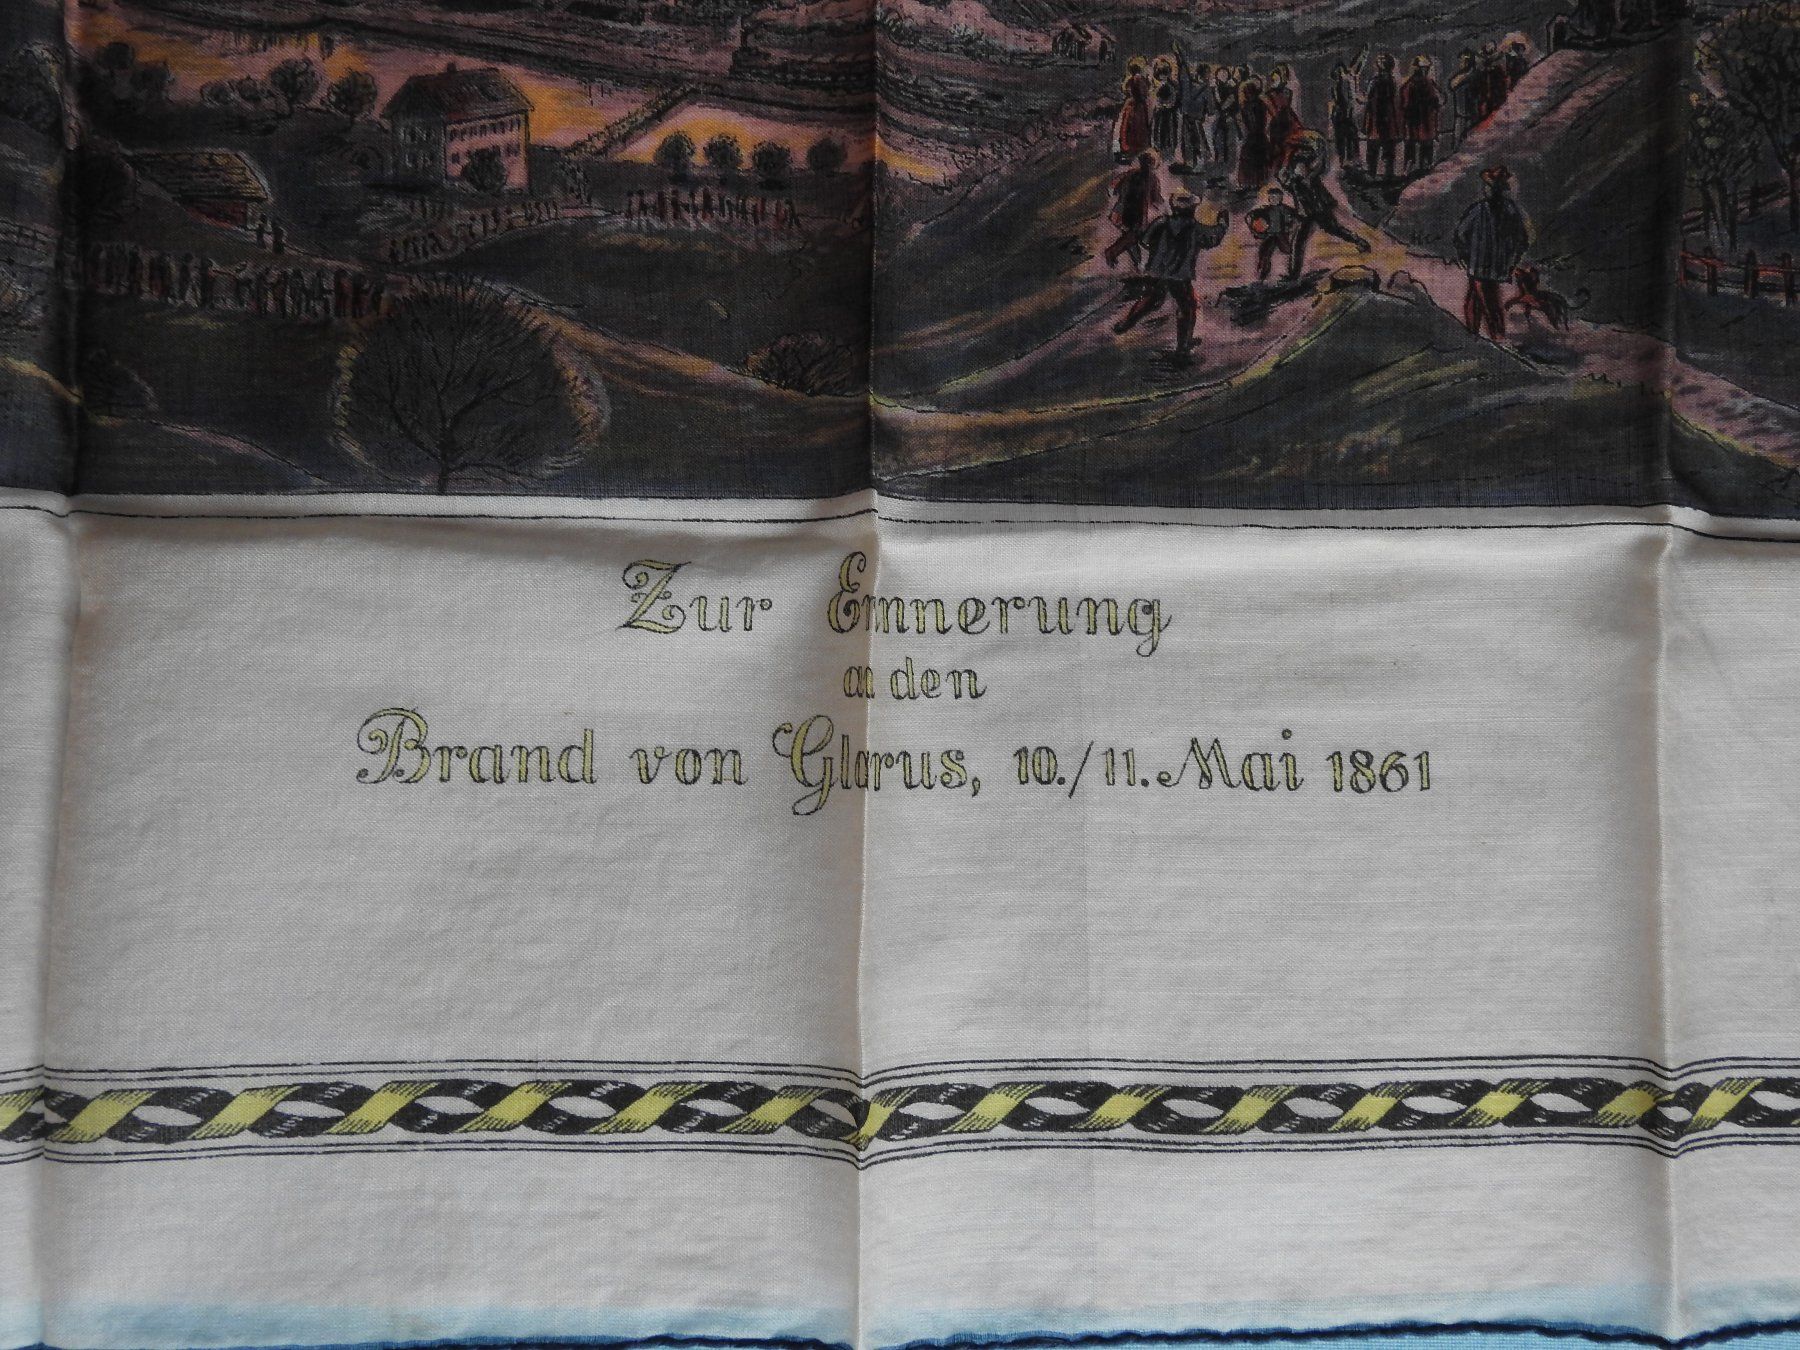 Zur Erinnerung
an den
Brand von Glarus, 10./11. Mai 1861